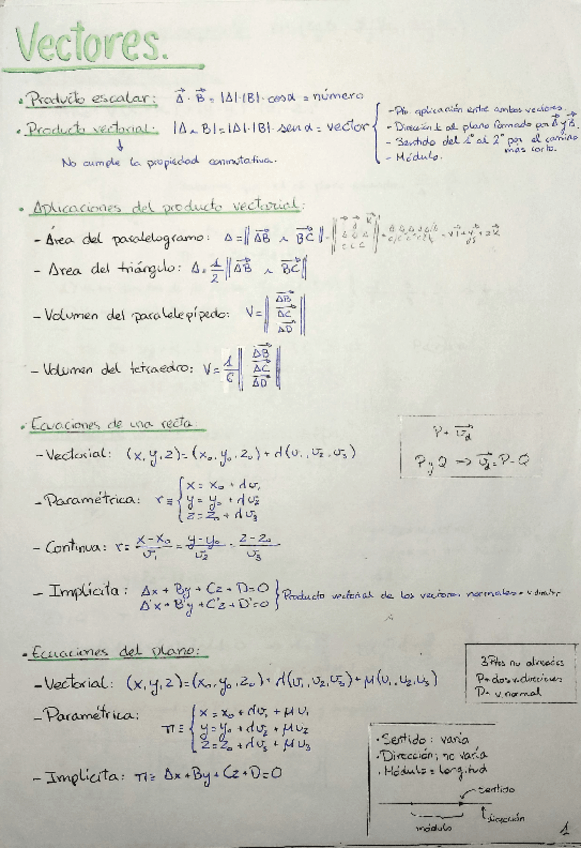 Vectores.
• Producto escalar: A · B = |A|·|B|· cos α = número
• Producto vectorial: |A ∧ B| = |A|·|B|· sen α = vector
- Pto. aplicación entre ambos vectores.
- Dirección ⊥ al plano formado por A y B.
- Sentido del 1º al 2º por el camino más corto.
- Módulo.
↓
No cumple la propiedad conmutativa.
• Aplicaciones del producto vectorial:
- Área del paralelogramo: A = ||AB ∧ BC||
- Área del triángulo: A = 1/2 ||AB ∧ BC||
- Volumen del paralelepípedo: V = || AB
AC
AD ||
- Volumen del tetraedro: V = 1/6 || AB
AC
AD ||
• Ecuaciones de una recta
P + v_d
P y Q → v_d = P - Q
- Vectorial: (x, y, z) = (x₀, y₀, z₀) + λ(v₁, v₂, v₃)
- Paramétrica: r ≡ { x = x₀ + λv₁
y = y₀ + λv₂
z = z₀ + λv₃
- Continua: r ≡ x-x₀/v₁ = y-y₀/v₂ = z-z₀/v₃
- Implícita: Ax + By + Cz + D = 0
A'x + B'y + C'z + D' = 0 } Producto vectorial de los vectores normales = v director
• Ecuaciones del plano:
3 Ptos no alineados
P + dos v. direcciones
P + v normal
- Vectorial: (x, y, z) = (x₀, y₀, z₀) + λ(v₁, v₂, v₃) + μ(u₁, u₂, u₃)
- Paramétrica:
π ≡ { x = x₀ + λv₁ + μu₁
y = y₀ + λv₂ + μu₂
z = z₀ + λv₃ + μu₃
- Implícita: π ≡ Ax + By + Cz + D = 0
• Sentido: varía
• Dirección: no varía
• Módulo = longitud
sentido
dirección
módulo
1